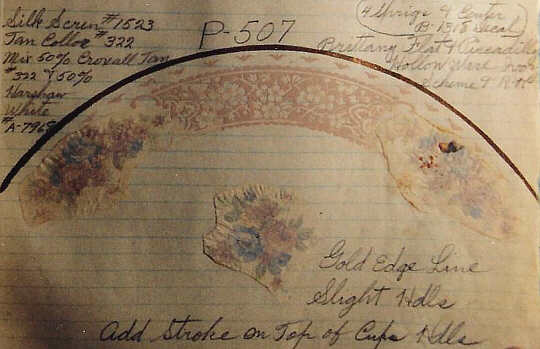 P-507
Silk Screen #1523
Tan Color #322
Mix 50% Croxall Tan
#322 & 50%
Harshaw
White
4 Sprigs & Center
Brittany Flat & Piccadilly
Hollow Ware
Gold Edge Line
Slight Hdls
Add Stroke on Top of Cups Hdls